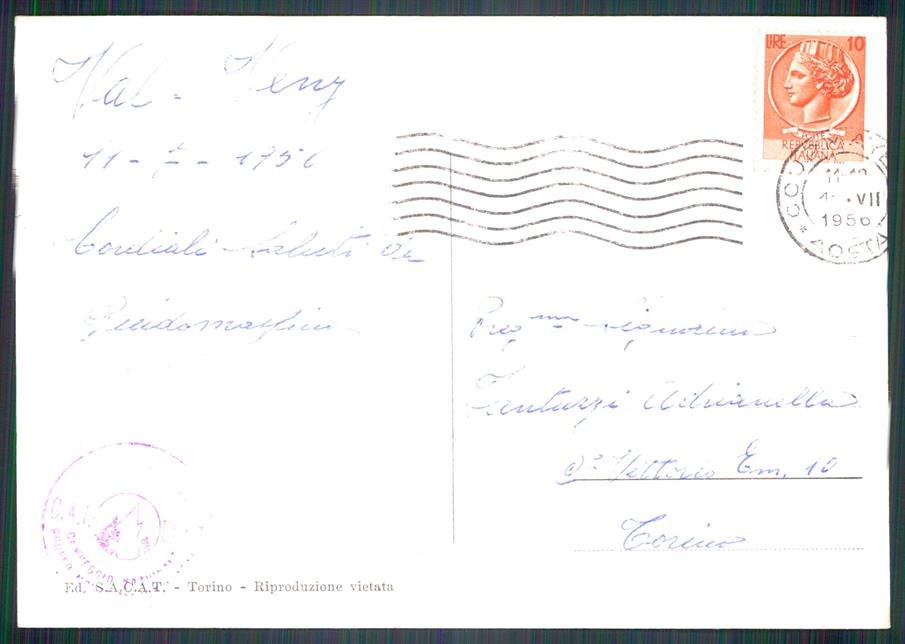 Val - Veny
11 - 7 - 1956
Cordiali Saluti da
Guidomassimo
LIRE 10
POSTE
REPVBBLICA
ITALIANA
VII
1956
AOSTA
Preg.ma Signorina
Fantuzzi Adrianella
Vittorio Em. 10
Torino
C.A.I.
CAMPEGGIO
Ed. S.A.C.A.T. - Torino - Riproduzione vietata